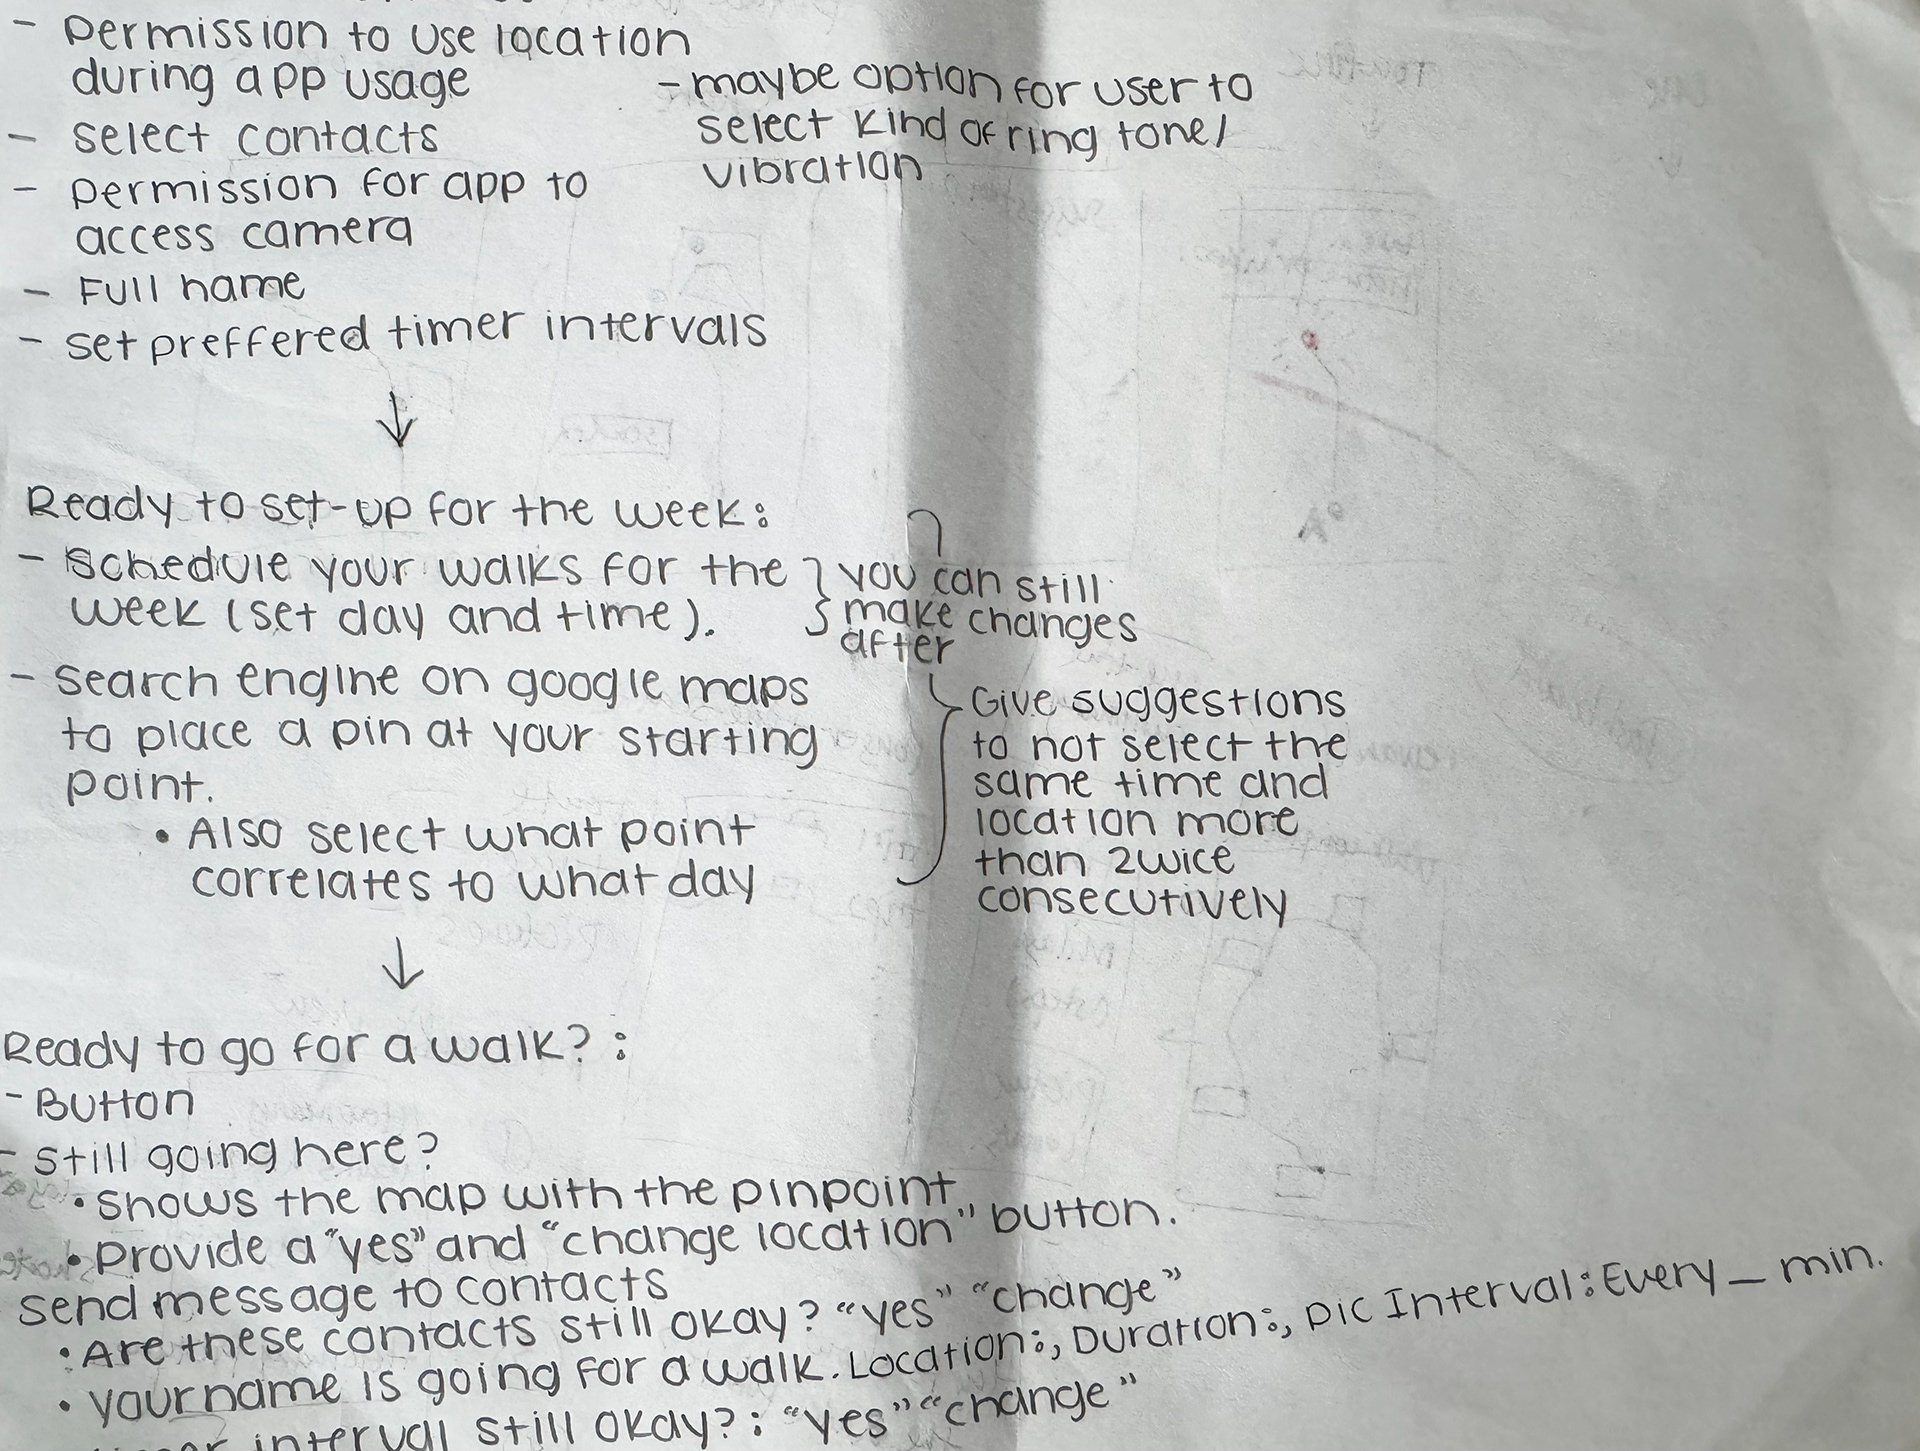 - Permission to use location
during app usage
- select contacts
- permission for app to
access camera
- Full name
- set preffered timer intervals
- maybe option for user to
select kind of ring tone/
vibration
↓
Ready to set-up for the week:
- schedule your walks for the
week (set day and time).
} you can still
make changes
after
- search engine on google maps
to place a pin at your starting
point.
• Also select what point
correlates to what day
Give suggestions
to not select the
same time and
location more
than 2wice
consecutively
↓
Ready to go for a walk? :
- Button
- still going here?
• shows the map with the pinpoint
• provide a "yes" and "change location" button.
send message to contacts
• Are these contacts still okay? "yes" "change"
• your name is going for a walk. Location:, Duration:, pic Interval: Every _ min.
interval still okay?: "yes" "change"